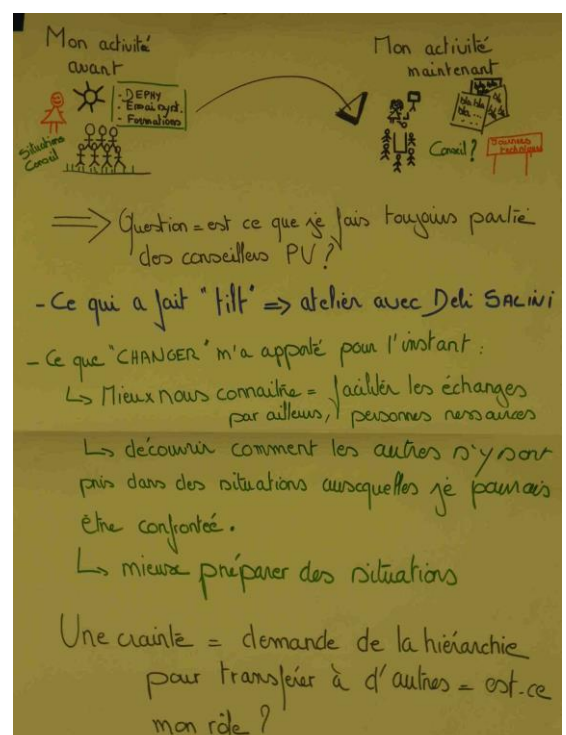 Mon activité
avant
Mon activité
maintenant
- DEPHY
- Essai syst.
- Formations
Situations
Conseil
bla bla
bla bla
bla
Conseil ?
Sources
techniques
=> Question = est ce que je fais toujours partie
des conseillers PV ?
- Ce qui a fait "tilt" => atelier avec Deli SALINI
- Ce que "CHANGER" m'a apporté pour l'instant :
↳ Mieux nous connaitre = faciliter les échanges
par ailleurs, personnes ressources
↳ découvrir comment les autres s'y sont
pris dans des situations auxquelles je pourrais
être confrontée.
↳ mieux préparer des situations
Une crainte = demande de la hiérarchie
pour transférer à d'autres = est-ce
mon rôle ?